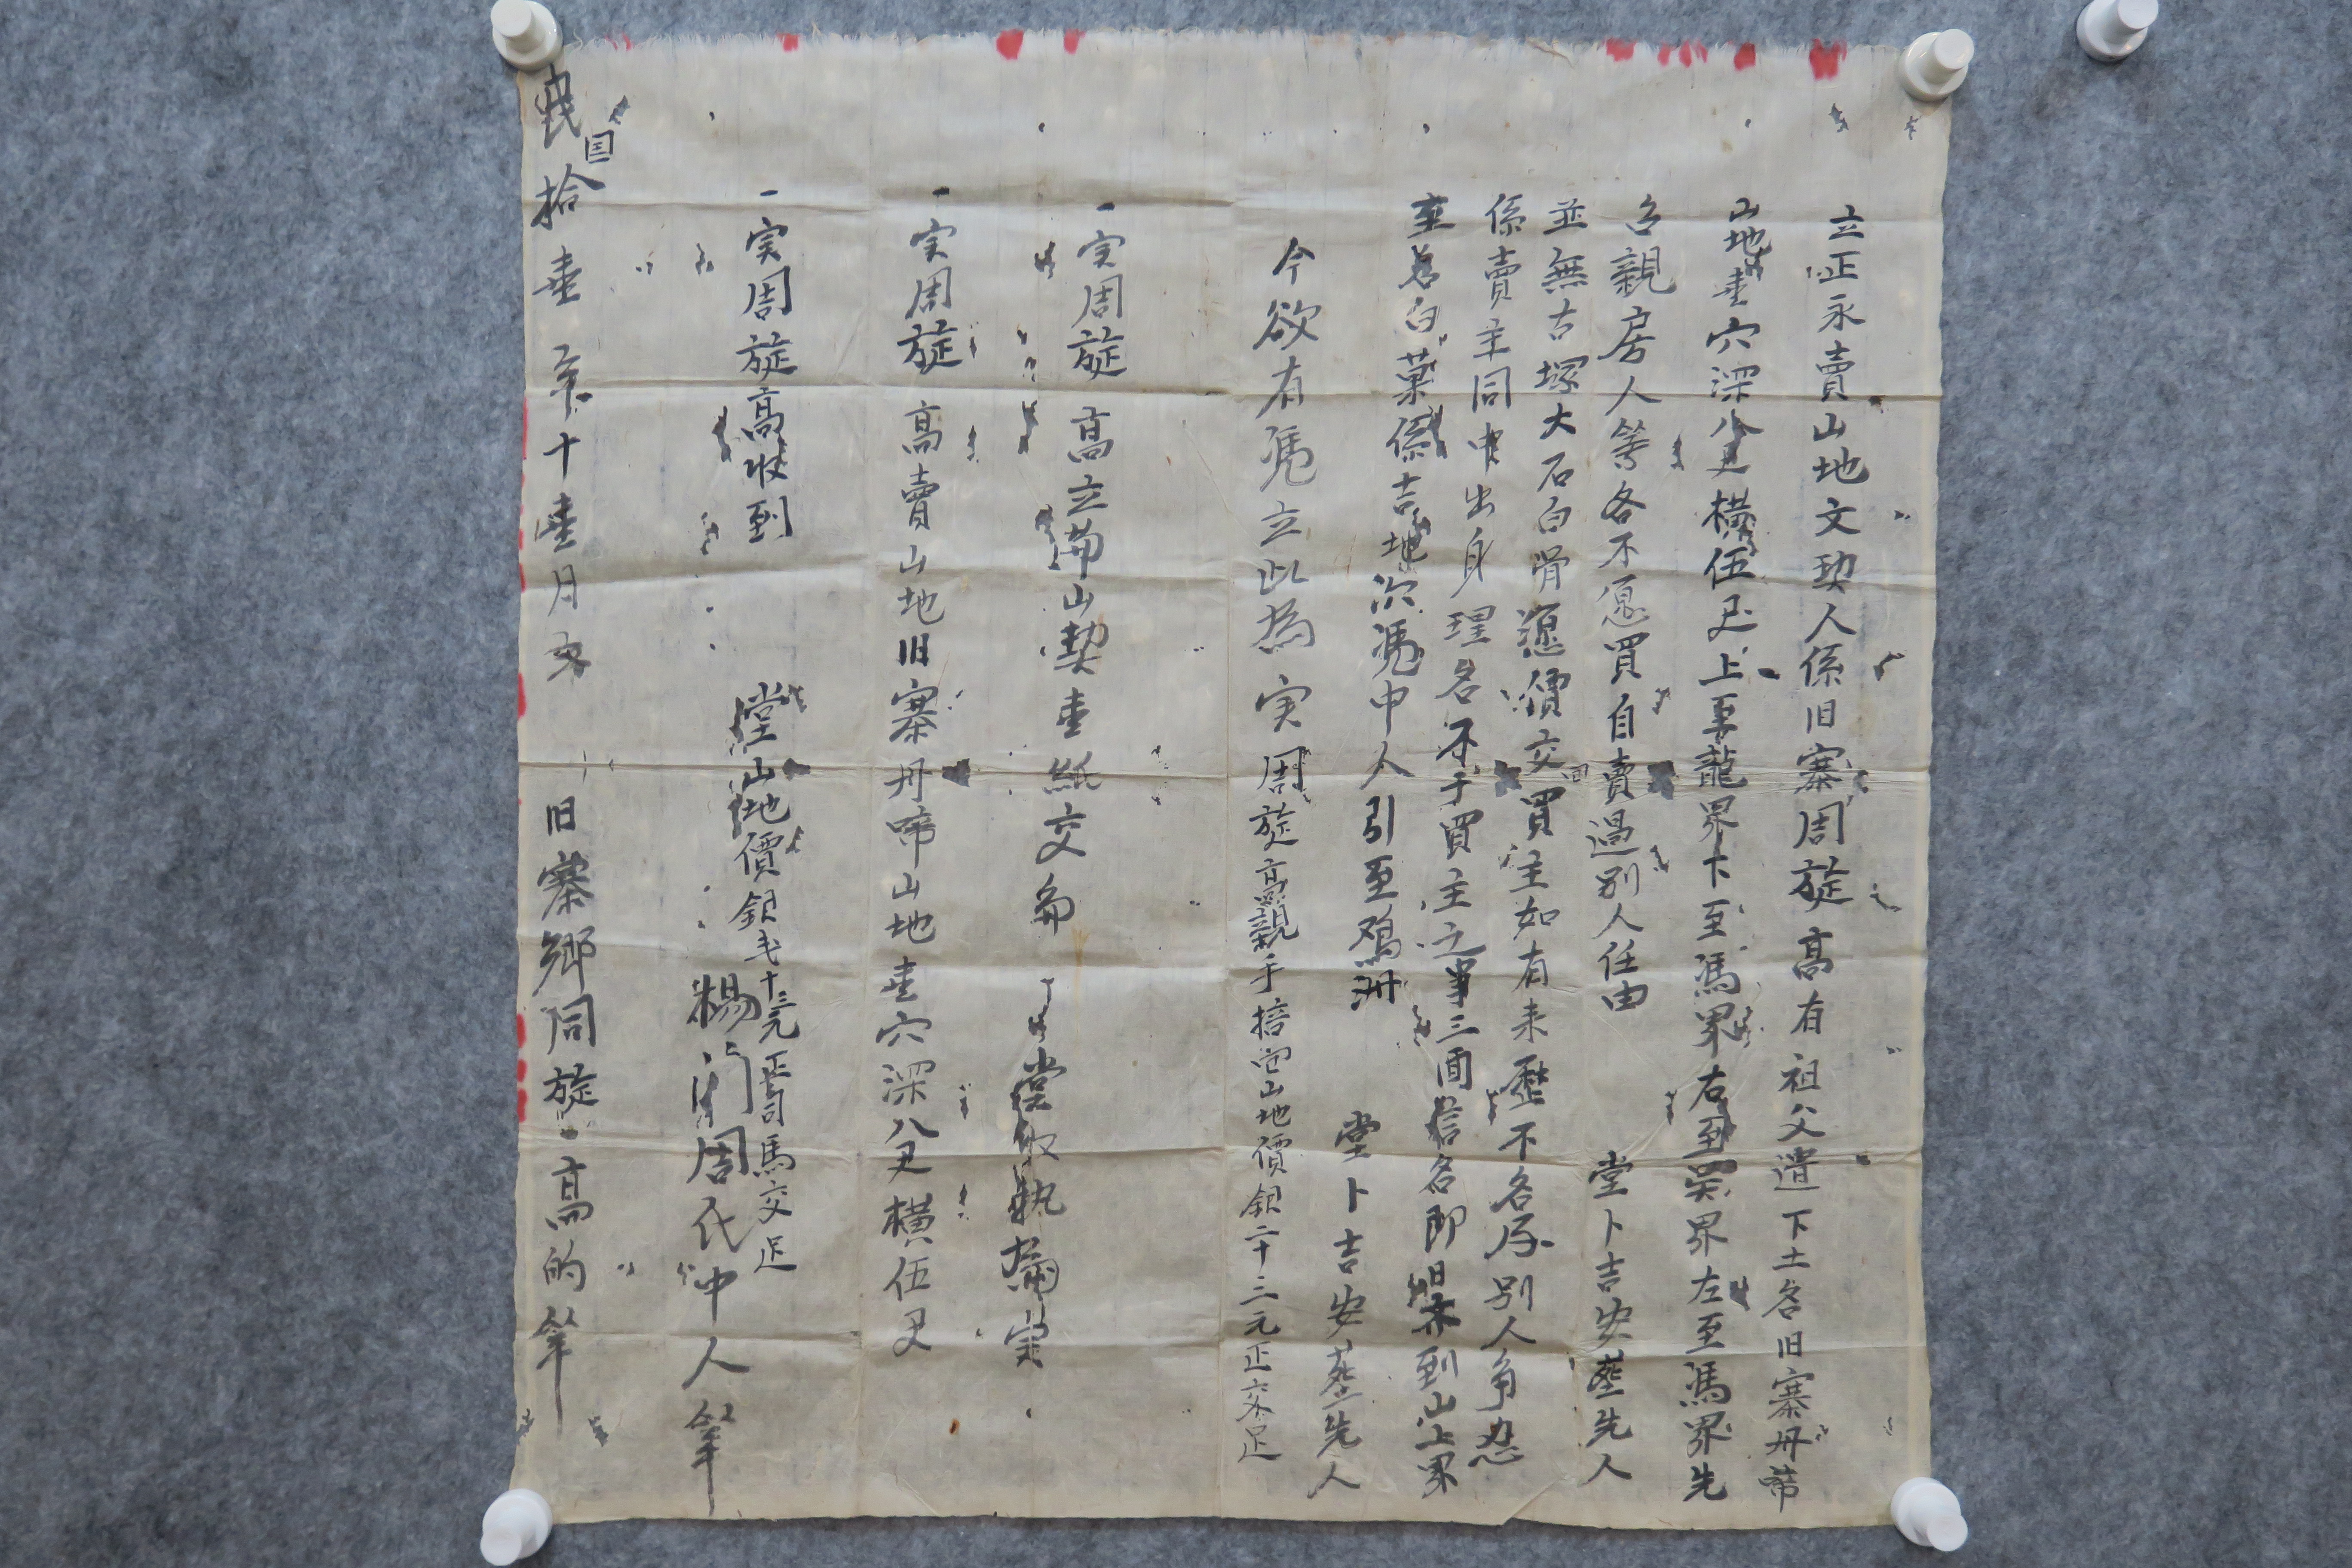 立正永賣山地文契人係旧寨周旋高有祖父遺下土名旧寨丹啼
山地壹穴深八尺橫伍尺上至龍界下至馮界右到吴界左至馮界先
名親房人等各不愿買自賣過別人任由堂卜吉安塟先人
並無古塚大石白骨還價交回買主如有来歷不各房別人争忍
係賣主同中出身理名不于買主之事三面言名即日亦到山上界
至名白菓係吉地次馮中人引至鴉洲堂卜吉安塟先人
今欲有凴立此為实周旋高親手接回山地價銀二十三元正交足
一实周旋高立山契壹紙交 堂收執為実
一实周旋高賣山地旧寨丹啼山地壹穴深八尺橫伍尺
一实周旋高收到堂山地價銀弍十三元正司馬交足
楊門周氏中人筆
民国拾壹年十壹月 旧寨鄉周旋高的筆